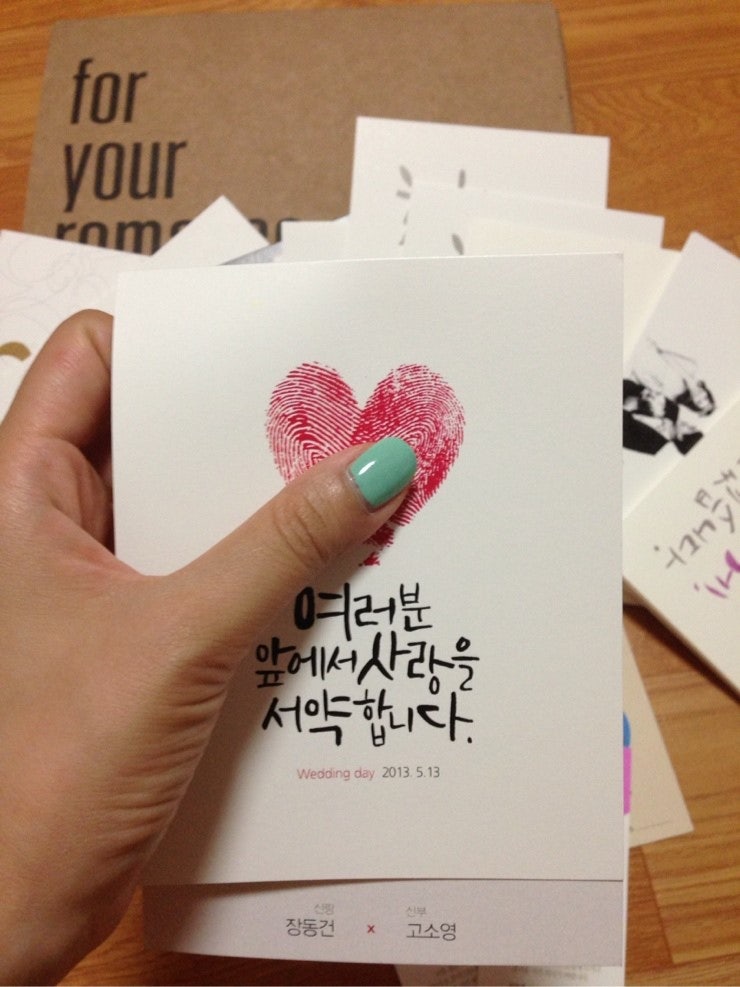 for
your
여러분
앞에서 사랑을
서약합니다.
Wedding day 2013. 5.13
신랑 신부
장동건 x 고소영